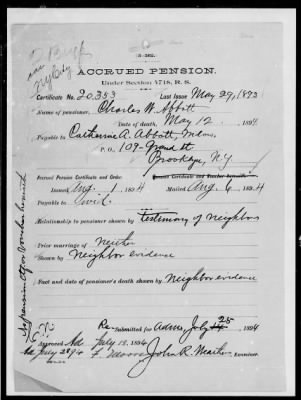 ACCRUED PENSION.
Under Section 4718, R. S.
Certificate No. 20.353 Last Issue May 29, 1893
Name of pensioner, Charles W. Abbott
Date of death, May 12, 1894
Payable to Catherine A. Abbott, Widow
P. O., 109 Grand St
Brooklyn, N.Y.
Accrued Pension Certificate and Order:
Issued Aug. 1, 1894 Mailed Aug. 6, 1894
Payable to
Relationship to pensioner shown by testimony of neighbors
Prior marriage of Neither
Shown by Neighbor evidence
Fact and date of pensioner's death shown by Neighbor evidence
Re-Submitted for Adm. July 25, 1894
Approved July 18, 1894
July 28 94 John R. Examiner.